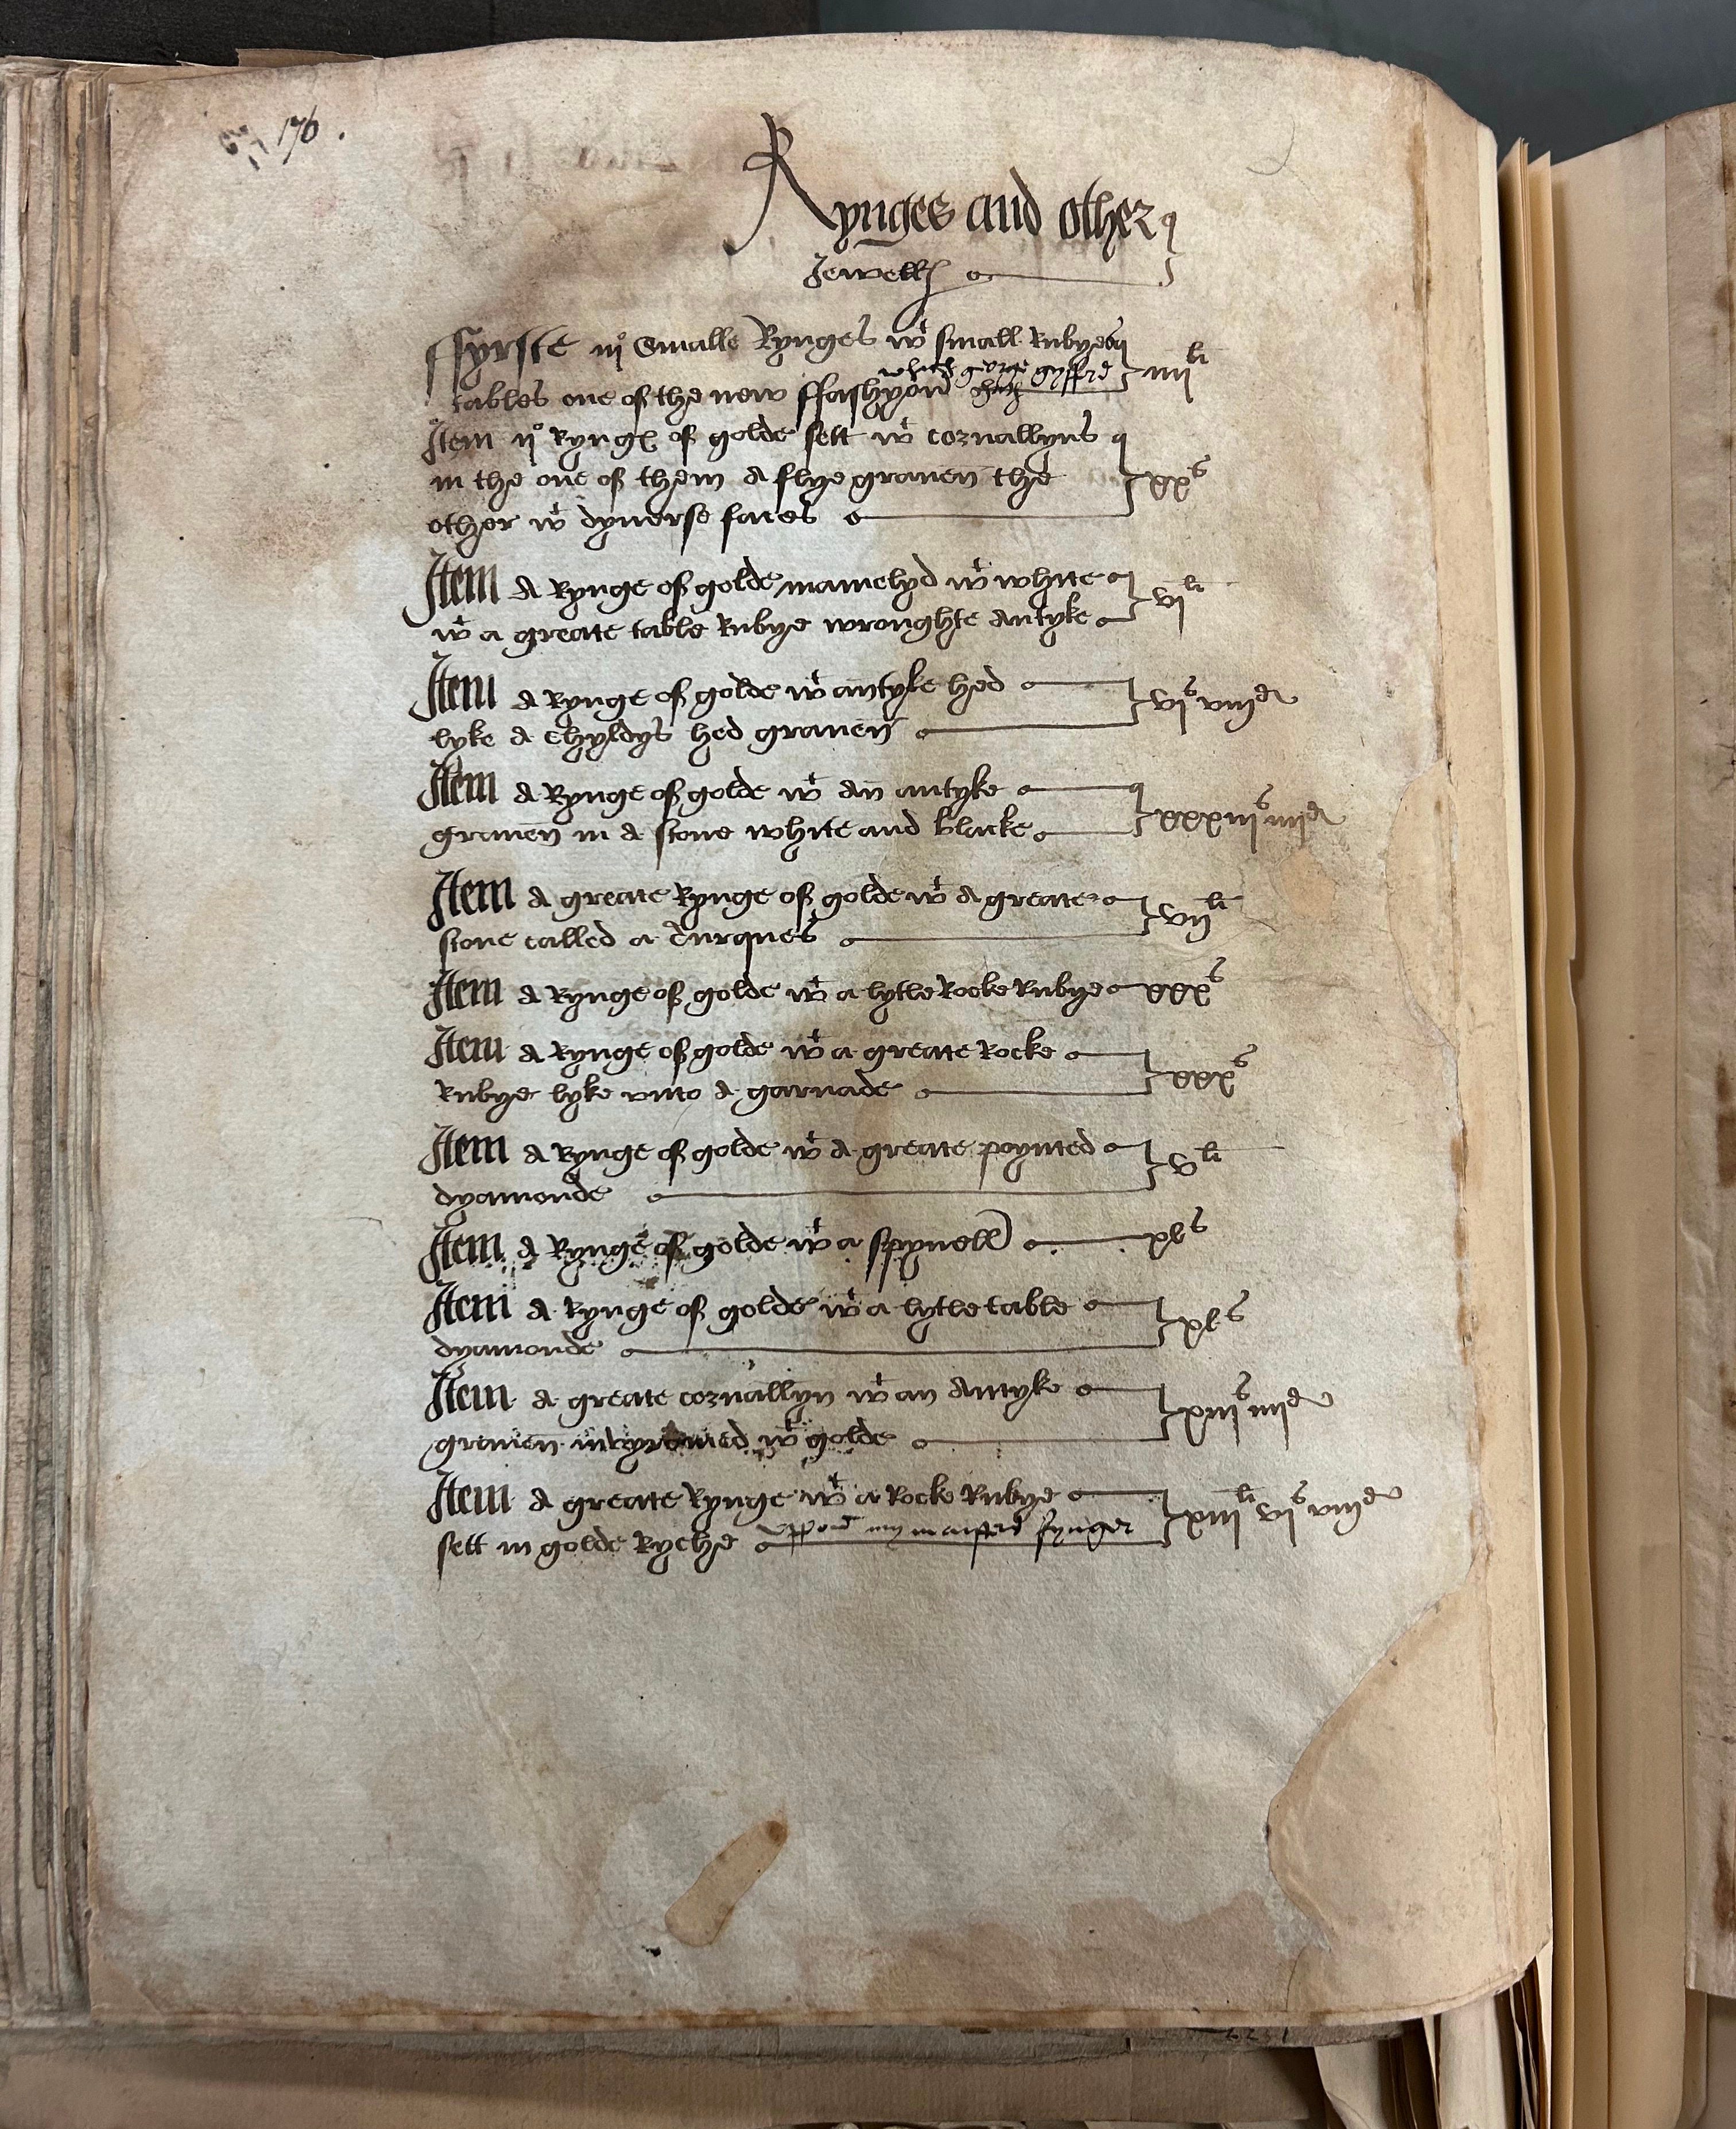 176.
Rynges and other
Jewell
ffyrste iij Smalle Rynges wt small Rubyes
which george gyfford
tables one of the new ffashyon hath iiij li
Item ij Ryng of golde sett wt cornallyns
in the one of them a flye graven the xx s
other wt dyverse faces
Item a Rynge of golde inamelyd wt white
wt a greate table Rubye wroughte Antyke vj li
Item a Rynge of golde wt antyke hed
lyke a chyldys hed graven vj s viij d
Item a Rynge of golde wt an antyke
graven in a stone white and blacke xxxiij s iiij d
Item a greate Rynge of golde wt a greate
stone called a Turques vij li
Item a Rynge of golde wt a lytle Rocke Rubye xxx s
Item a Rynge of golde wt a greate Rocke
Rubye lyke unto a garnade xxx s
Item a Rynge of golde wt a greate poynted
dyamonde v li
Item a Rynge of golde wt a spynell xl s
Item a Rynge of golde wt a lytle table
dyamonde xl s
Item a greate cornallyn wt an Antyke
graven wt golde xiij s iiij d
Item a greate Rynge wt a Rocke Rubye
sett in golde Ryche uppon my maisters fynger xiij li vj s viij d